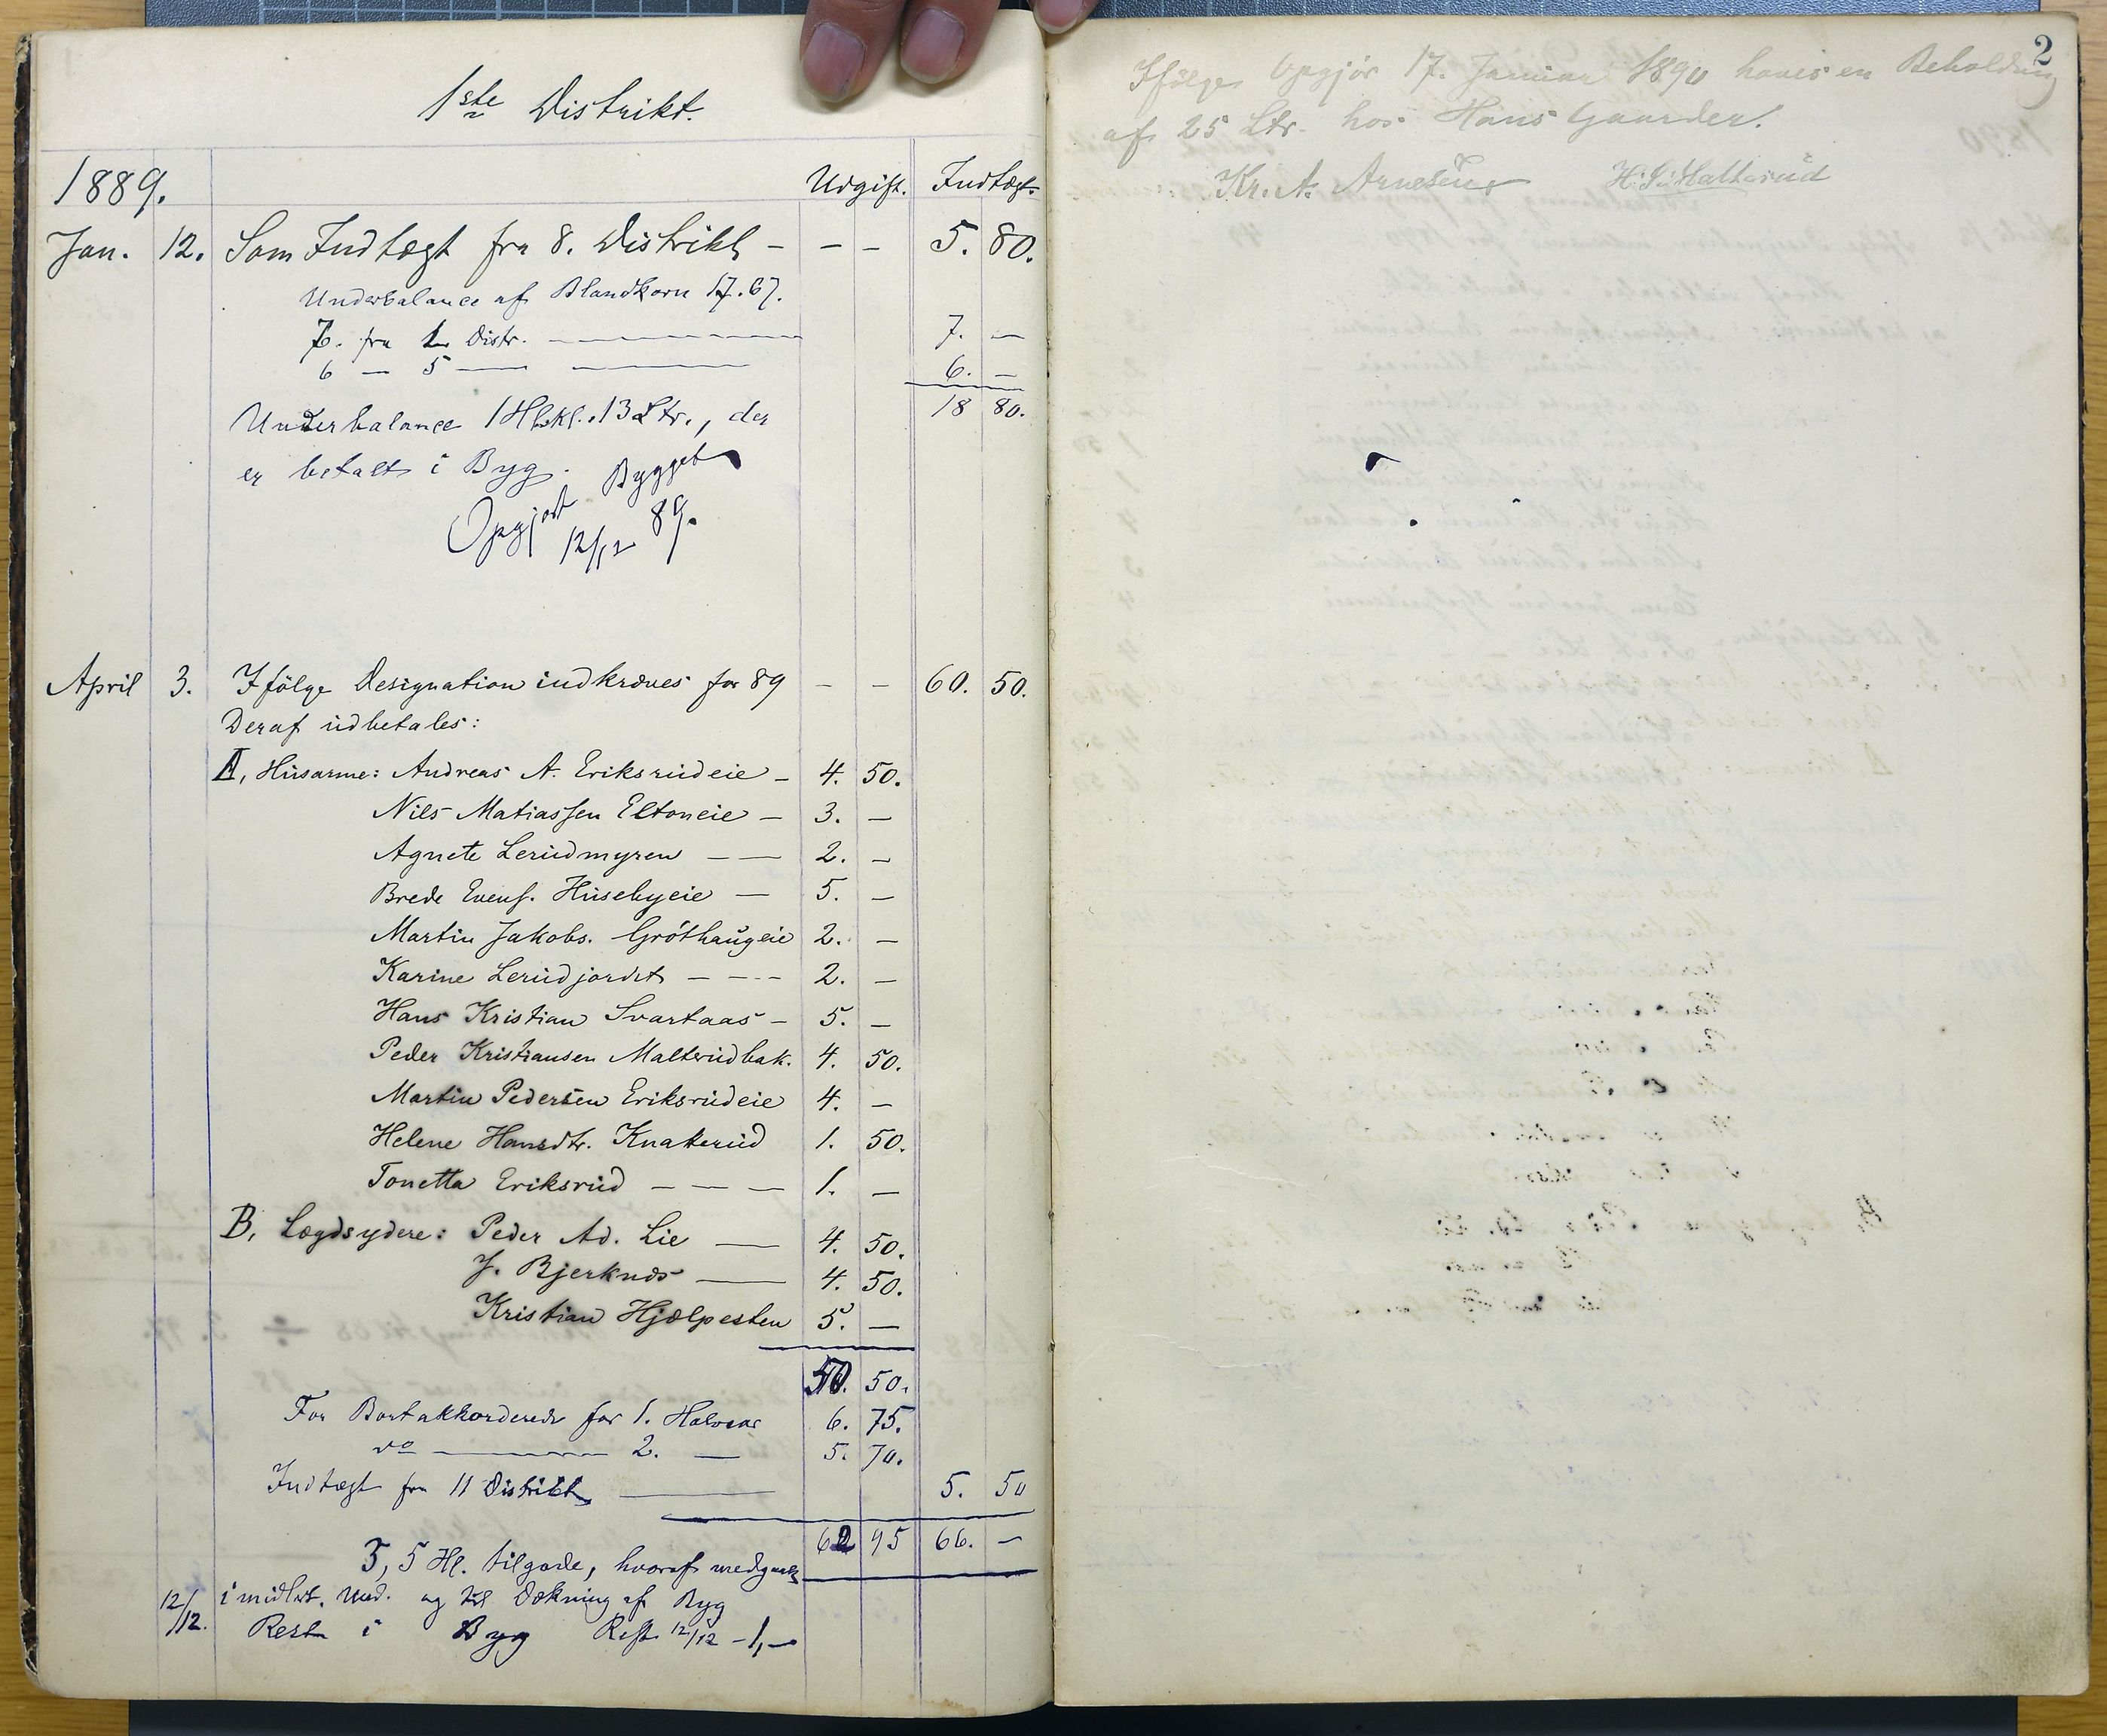 1ste Distrikt.
1889. Udgift. Indtægt.
Jan. 12. Som Indtægt fra 8. Distrikt - - - 5. 80.
Underbalance af Blandkorn 17.67.
7. fra 1 Distr. — 7. —
6 — 5 — — 6. —
18 80.
Underbalance 1 Hkl. 13 Ltr., der
er betalt i Byg. Bygget
Opgjort 12/12 89.
April 3. Ifölge Designation indkræves for 89 - - 60. 50.
Deraf udbetales:
A, Husarme: Andreas A. Eriksrudeie - 4. 50.
Nils Matiassen Eltoneie - 3. —
Agnete Lerudmyren — — 2. -
Brede Evens. Husebyeie — 5. —
Martin Jakobs. Gröthaugeie 2. —
Karine Lerudjordet - - - - 2. —
Hans Kristian Svartaas - 5. —
Peder Kristiansen Malterudbak. 4. 50.
Martin Pedersen Eriksrudeie 4. —
Helene Hansdtr. Knakerud 1. 50.
Tonetta Eriksrud — — — 1. —
B, Lægdsydere: Peder Ad. Lie — 4. 50.
J. Bjerknæs — 4. 50.
Kristian Hjælpesten 5. —
50. 50.
For Bortakkorderede for 1. Halvaar 6. 75.
do — 2. — 5. 70.
Indtægt fra 11 Distrikt — 5. 50
62 95 66. —
3,5 Hl. tilgode, hvoraf medgaaet
12/12. imidlert. Und. og til Dækning af Byg
Rest i Byg Rest 12/12 - 1, —
2
Ifölge Opgjör 17. Januar 1890 haves en Beholdning
af 25 Ltr. hos Hans Gaarder.
Kr. A. Arnesen H. S. Malterud